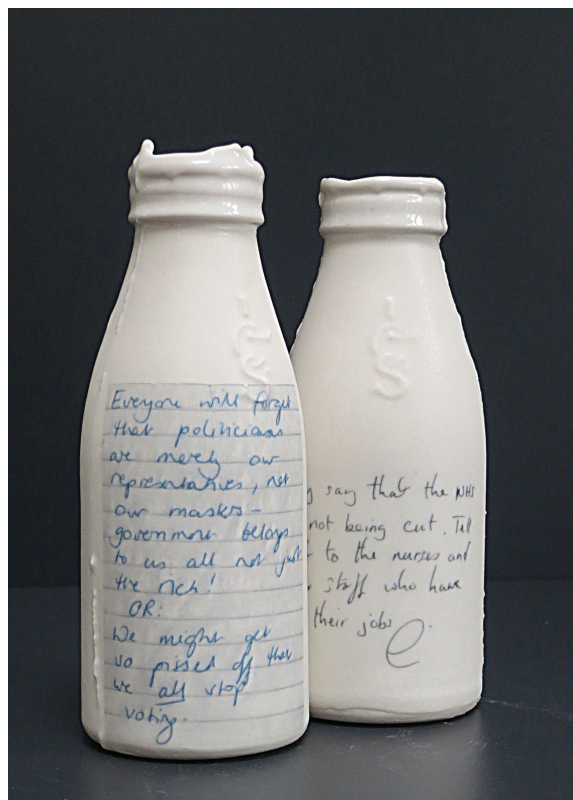 ICS
Everyone will forget
that politicians
are merely our
representatives, not
our masters –
government belongs
to us all not just
the rich!
OR:
We might get
so pissed off that
we all stop
voting.
ICS
say that the NHS
not being cut. Tell
to the nurses and
staff who have
their jobs